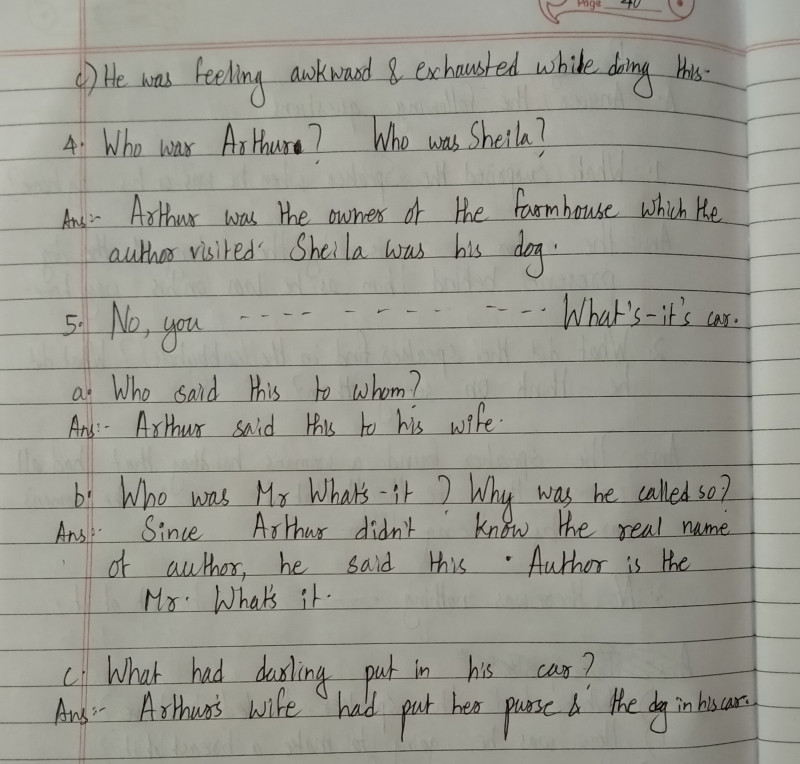 Page 40
c) He was feeling awkward & exhausted while doing this.
4. Who was Arthur? Who was Sheila?
Ans:- Arthur was the owner of the farmhouse which the
author visited. Sheila was his dog.
5. No, you ---- - - - - - ---- What's-it's car.
a. Who said this to whom?
Ans:- Arthur said this to his wife.
b. Who was Mr What's-it? Why was he called so?
Ans:- Since Arthur didn't know the real name
of author, he said this. Author is the
Mr. What's it.
c. What had darling put in his car?
Ans:- Arthur's wife had put her purse & the dog in his car.